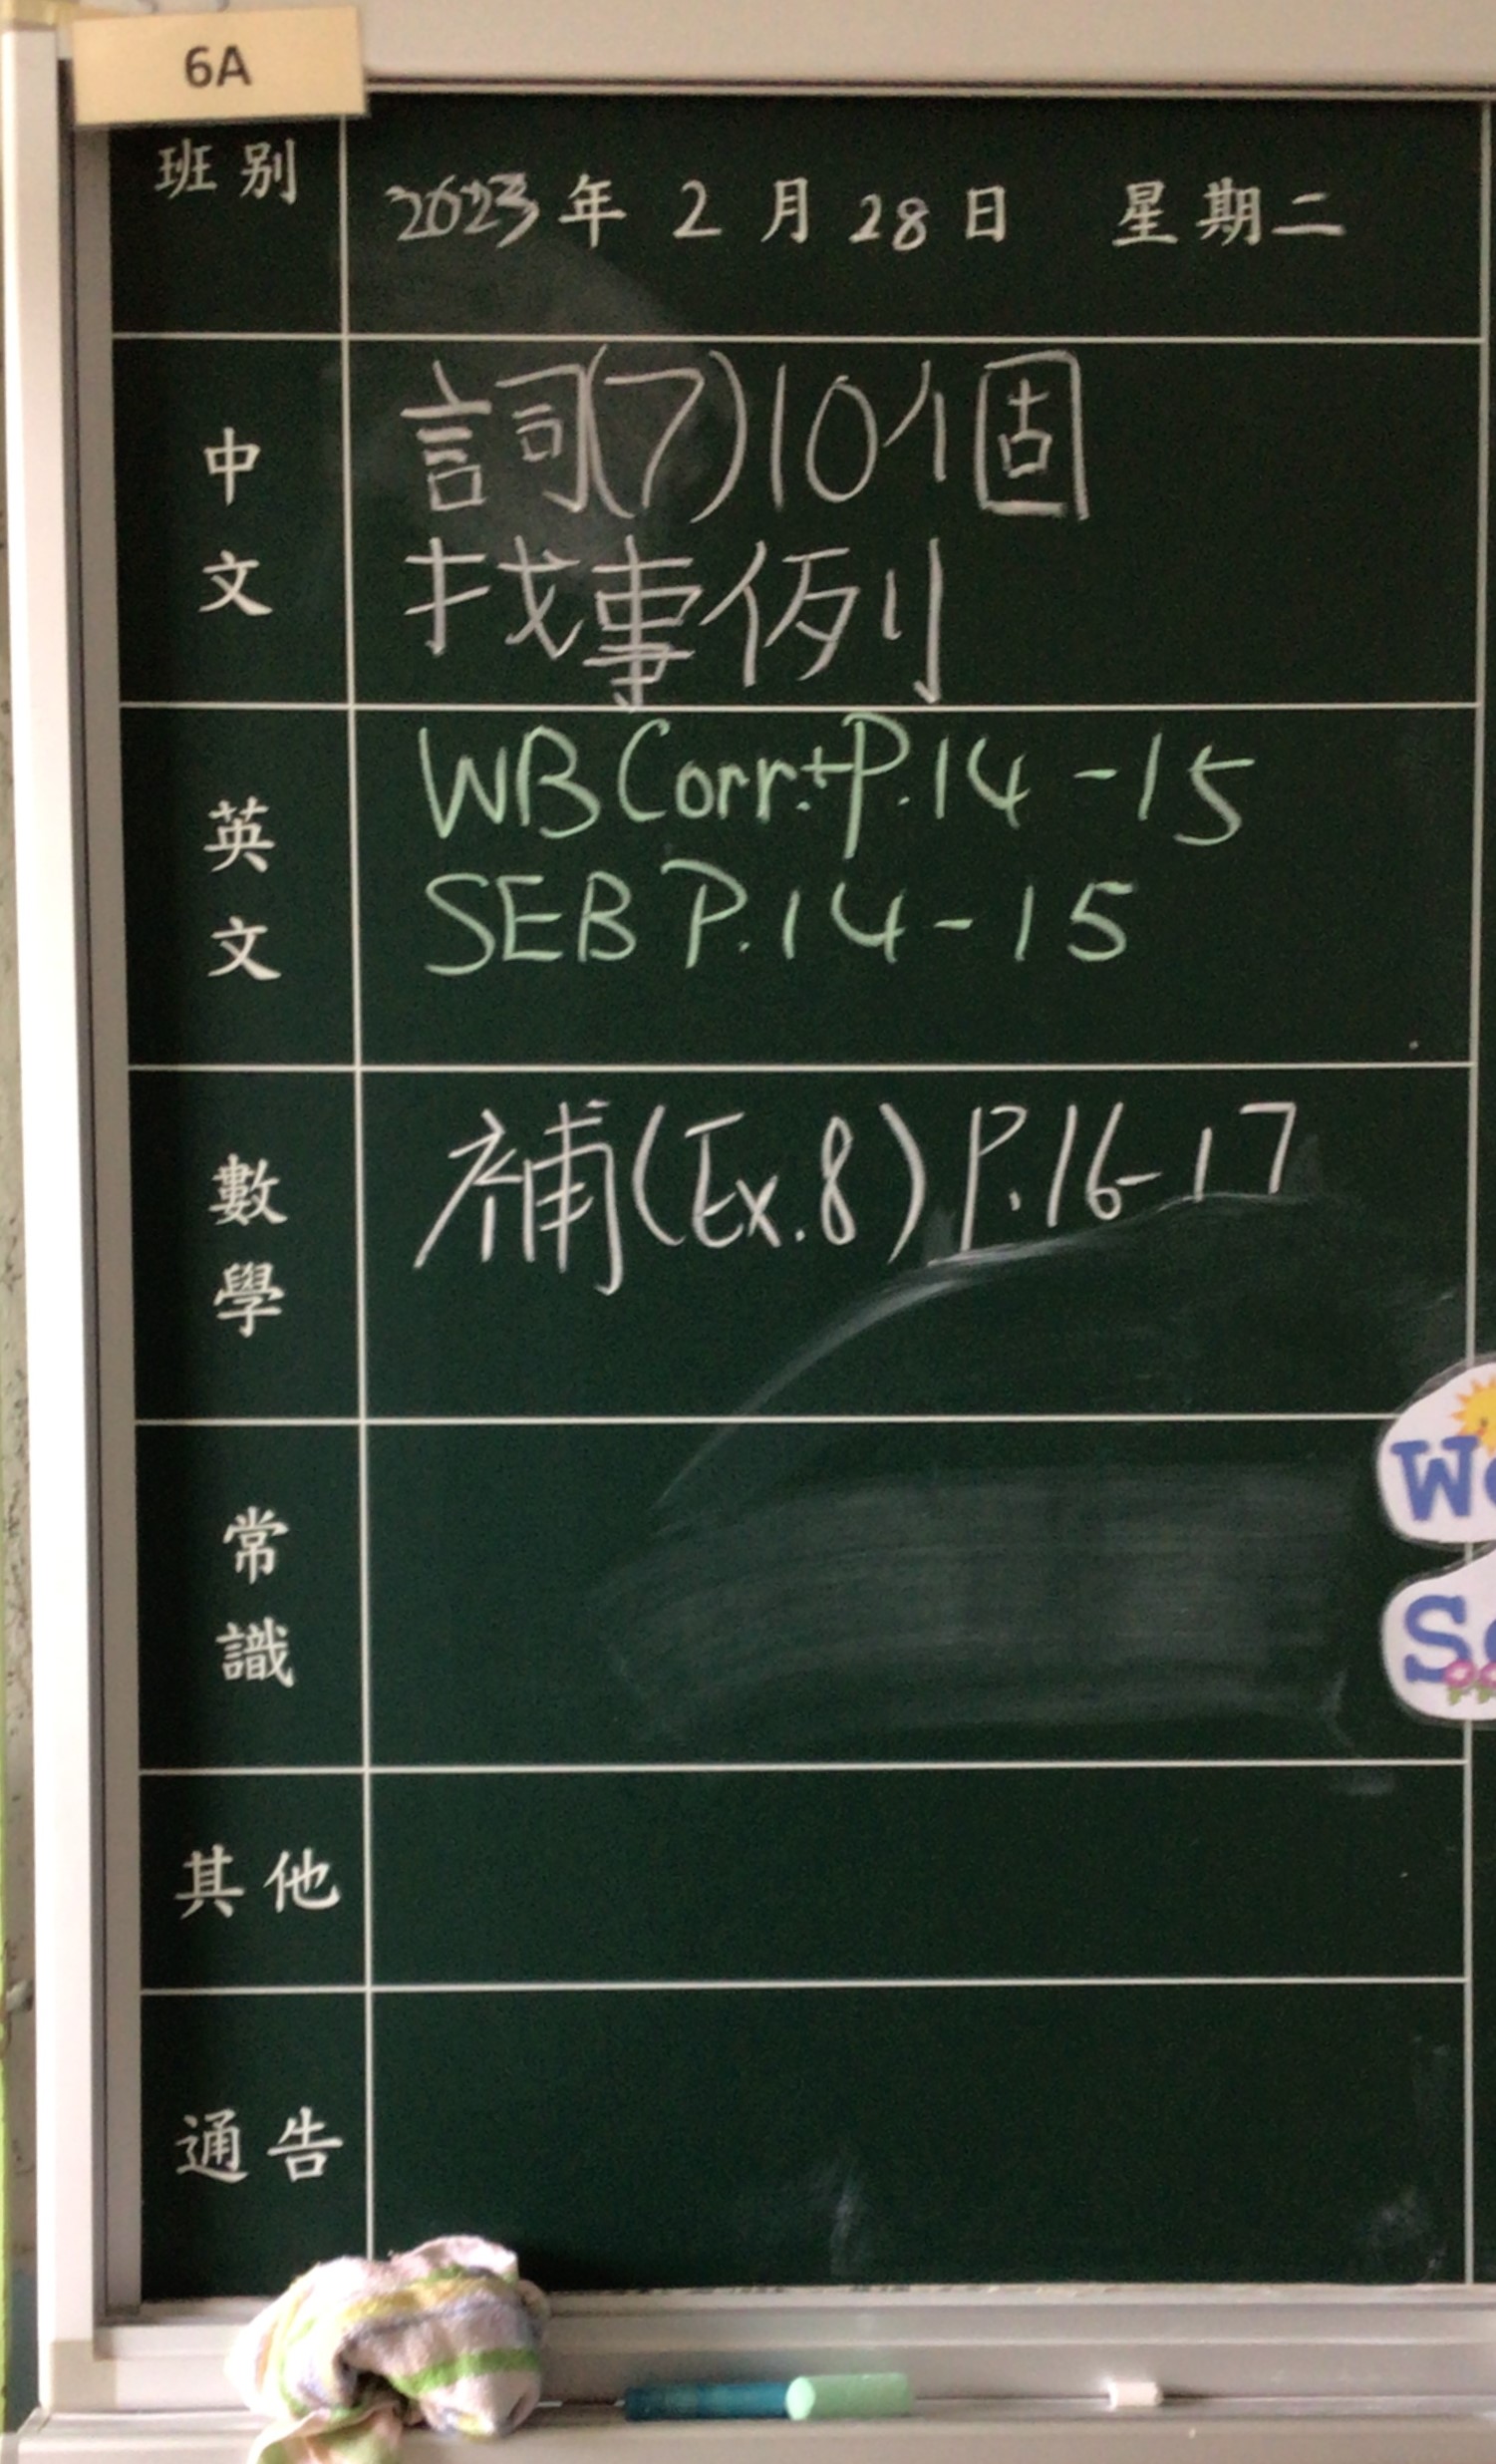 6A
班別
2023年 2月 28日 星期二
中文
詞(7)10個
找事例
英文
WB Corr.+P.14-15
SEB P.14-15
數學
補(Ex.8) P.16-17
常識
其他
通告